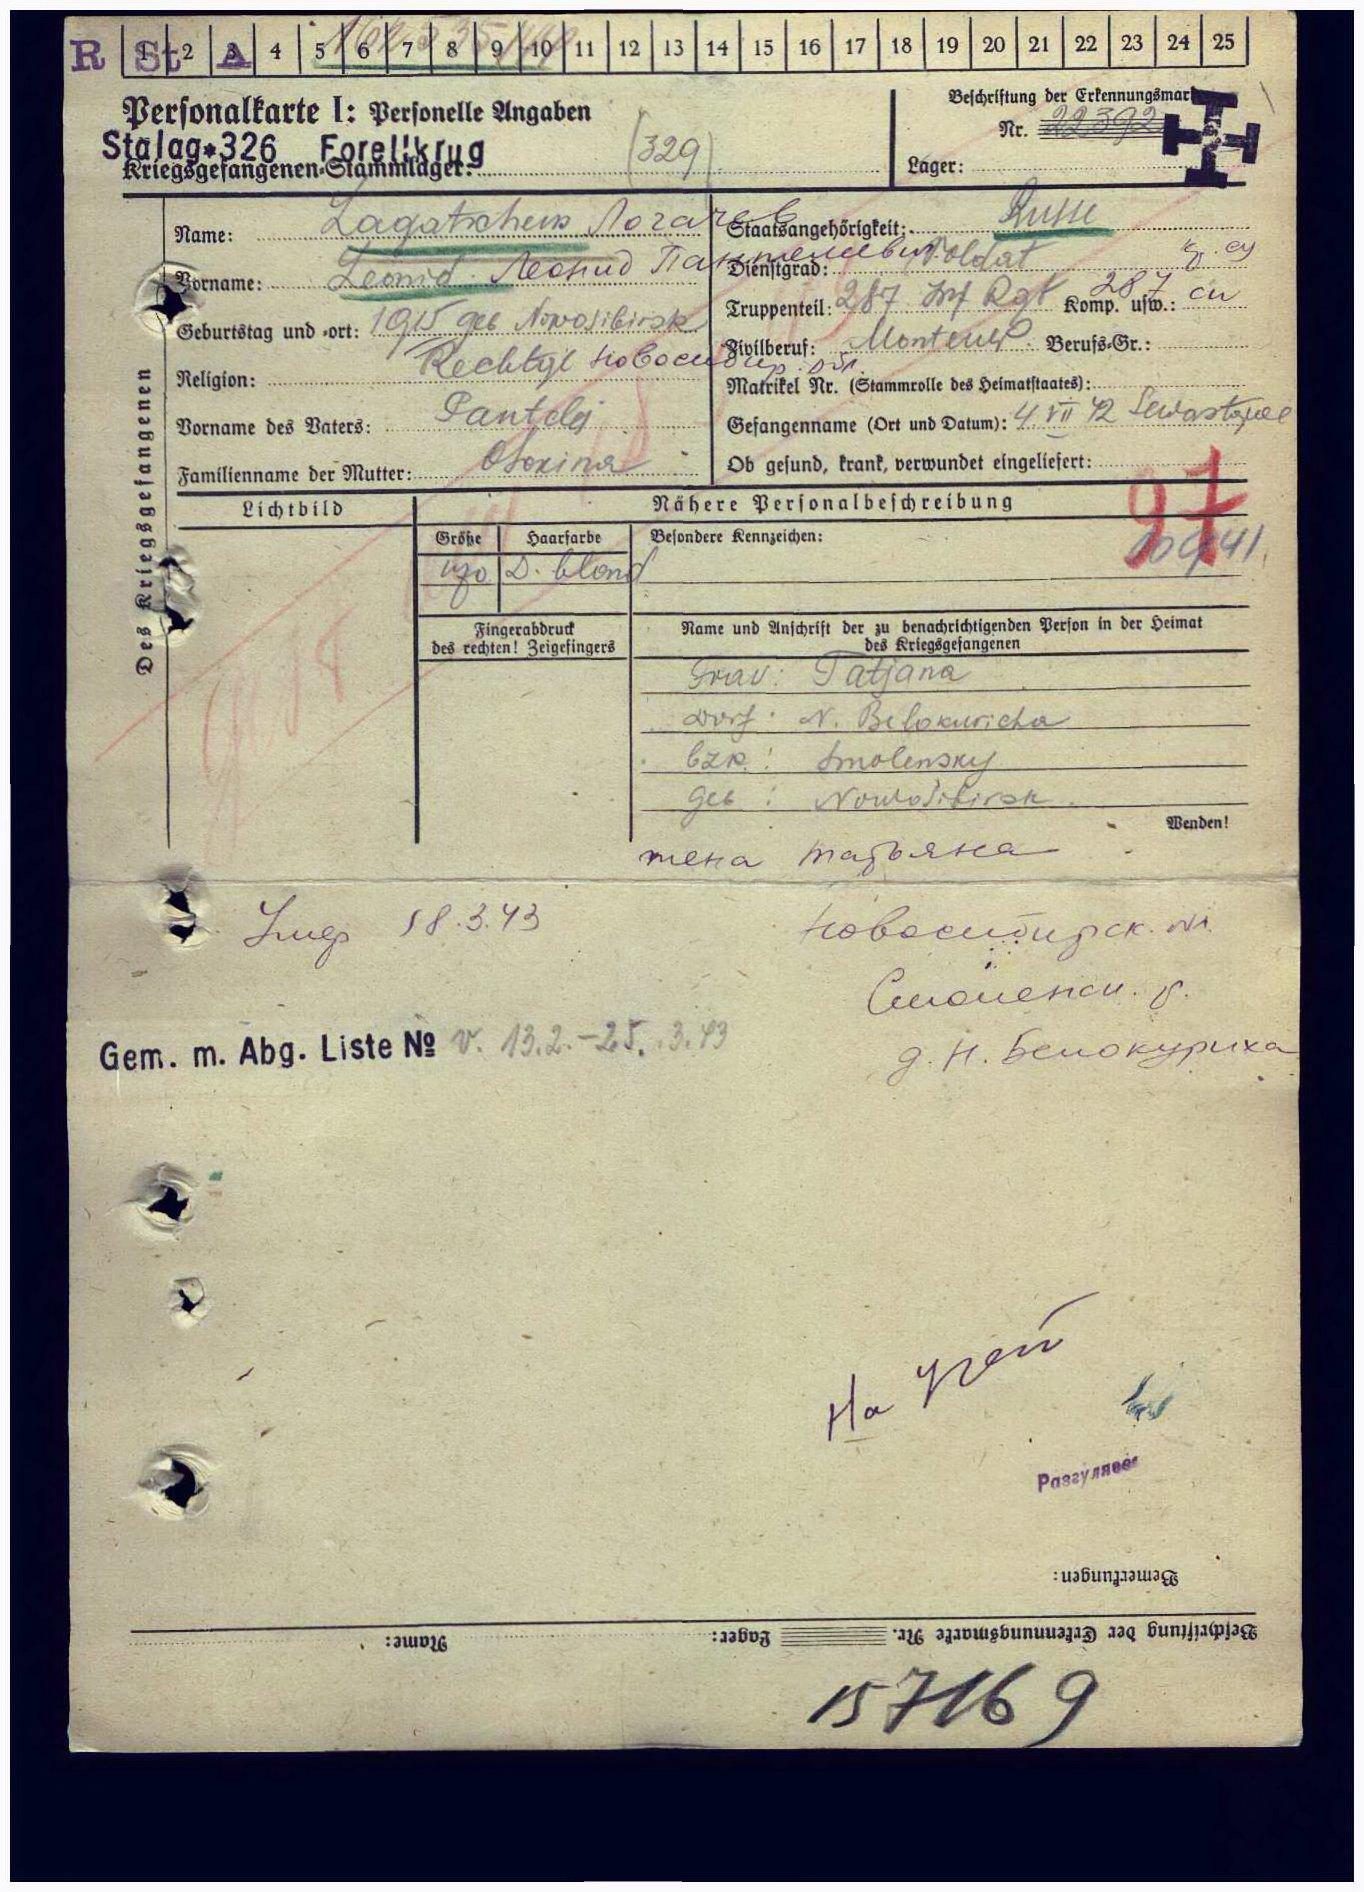 R St A
1 2 3 4 5 6 7 8 9 10 11 12 13 14 15 16 17 18 19 20 21 22 23 24 25
Personalkarte I: Personelle Angaben
Stalag 326 Forellkrug
Kriegsgefangenen-Stammlager:
(329)
Beschriftung der Erkennungsmarke
Nr. 22392
Lager:
Des Kriegsgefangenen
Name: Lagatschew Логачев
Vorname: Leonid Леонид Пантелеевич
Geburtstag und -ort: 1915 geb Nowosibirsk
Новосибир. обл.
Religion:
Vorname des Vaters: Pantelej
Familienname der Mutter:
Staatsangehörigkeit: Russe
Dienstgrad: Soldat
Truppenteil: 287 Inf Rgt Komp. usw.: 287 сп
Zivilberuf: Monteur Berufs-Gr.:
Matrikel Nr. (Stammrolle des Heimatstaates):
Gefangennahme (Ort und Datum): 4 VII 42 Sewastopol
Ob gesund, krank, verwundet eingeliefert:
97
Lichtbild
Nähere Personalbeschreibung
Größe Haarfarbe Besondere Kennzeichen:
170 D. blond
Fingerabdruck
des rechten! Zeigefingers
Name und Anschrift der zu benachrichtigenden Person in der Heimat
des Kriegsgefangenen
Frau: Tatjana
Dorf: N. Belokuricha
bzk.: Smolensky
Geb: Nowosibirsk
Wenden!
жена Татьяна
Умер 18.3.43
Новосибирск. обл.
Смоленск. р.
д. Н. Белокуриха
Gem. m. Abg. Liste № v. 13.2.-25.3.43
На учет
Разгуляев
Bemerkungen:
Beschriftung der Erkennungsmarke Nr. Lager: Name:
157169